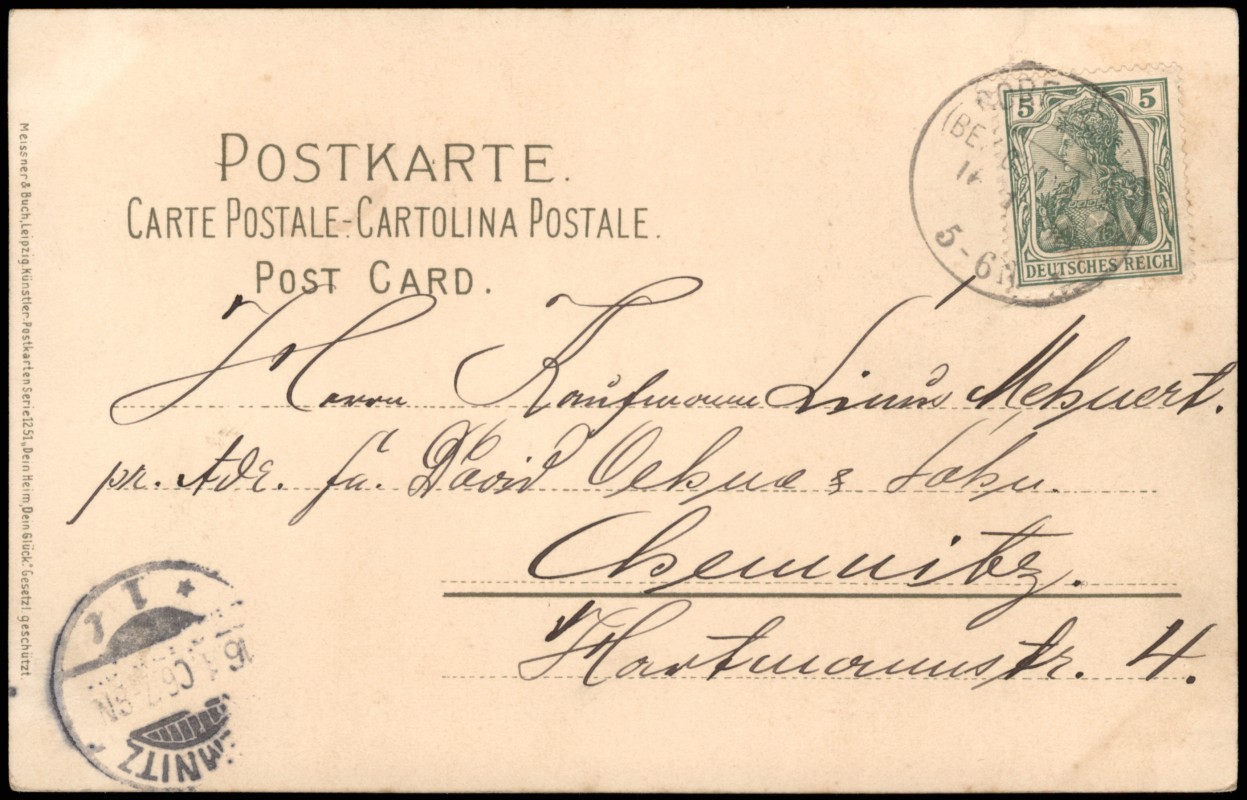 POSTKARTE.
CARTE POSTALE-CARTOLINA POSTALE.
POST CARD.
5 5
DEUTSCHES REICH
5-6N
Herrn Kaufmann Linus Mehnert.
pr. Adr. fa. David Oehme & Sohn.
Chemnitz.
Hartmannstr. 4.
Meissner & Buch, Leipzig. Künstler-Postkarten Serie 1251. „Dein Heim, Dein Glück.” Gesetzl. geschützt.
* 1
16.1.06. 7-8N
EMNITZ